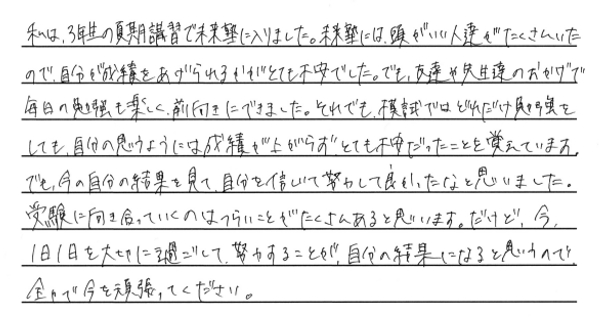 私は、3年生の夏期講習で未来塾に入りました。未来塾には、頭がいい人達がたくさんいた
ので、自分が成績をあげられるかがとても不安でした。でも、友達や先生達のおかげで
毎日の勉強も楽しく、前向きにできました。それでも、模試ではどれだけ勉強を
しても、自分の思うようには成績が上がらず、とても不安だったことを覚えています。
でも、今の自分の結果を見て、自分を信じて努力して良かったなと思いました。
受験に向き合っていくのはつらいことがたくさんあると思います。だけど、今、
1日1日を大切に過ごして、努力することが、自分の結果になると思うので、
全力で今を頑張ってください。